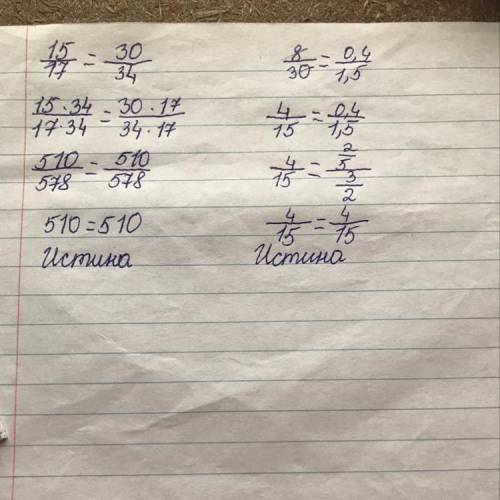 15/17 = 30/34
15·34/17·34 = 30·17/34·17
510/578 = 510/578
510 = 510
Истина
8/30 = 0,4/1,5
4/15 = 0,4/1,5
4/15 = 2/5/3/2
4/15 = 4/15
Истина